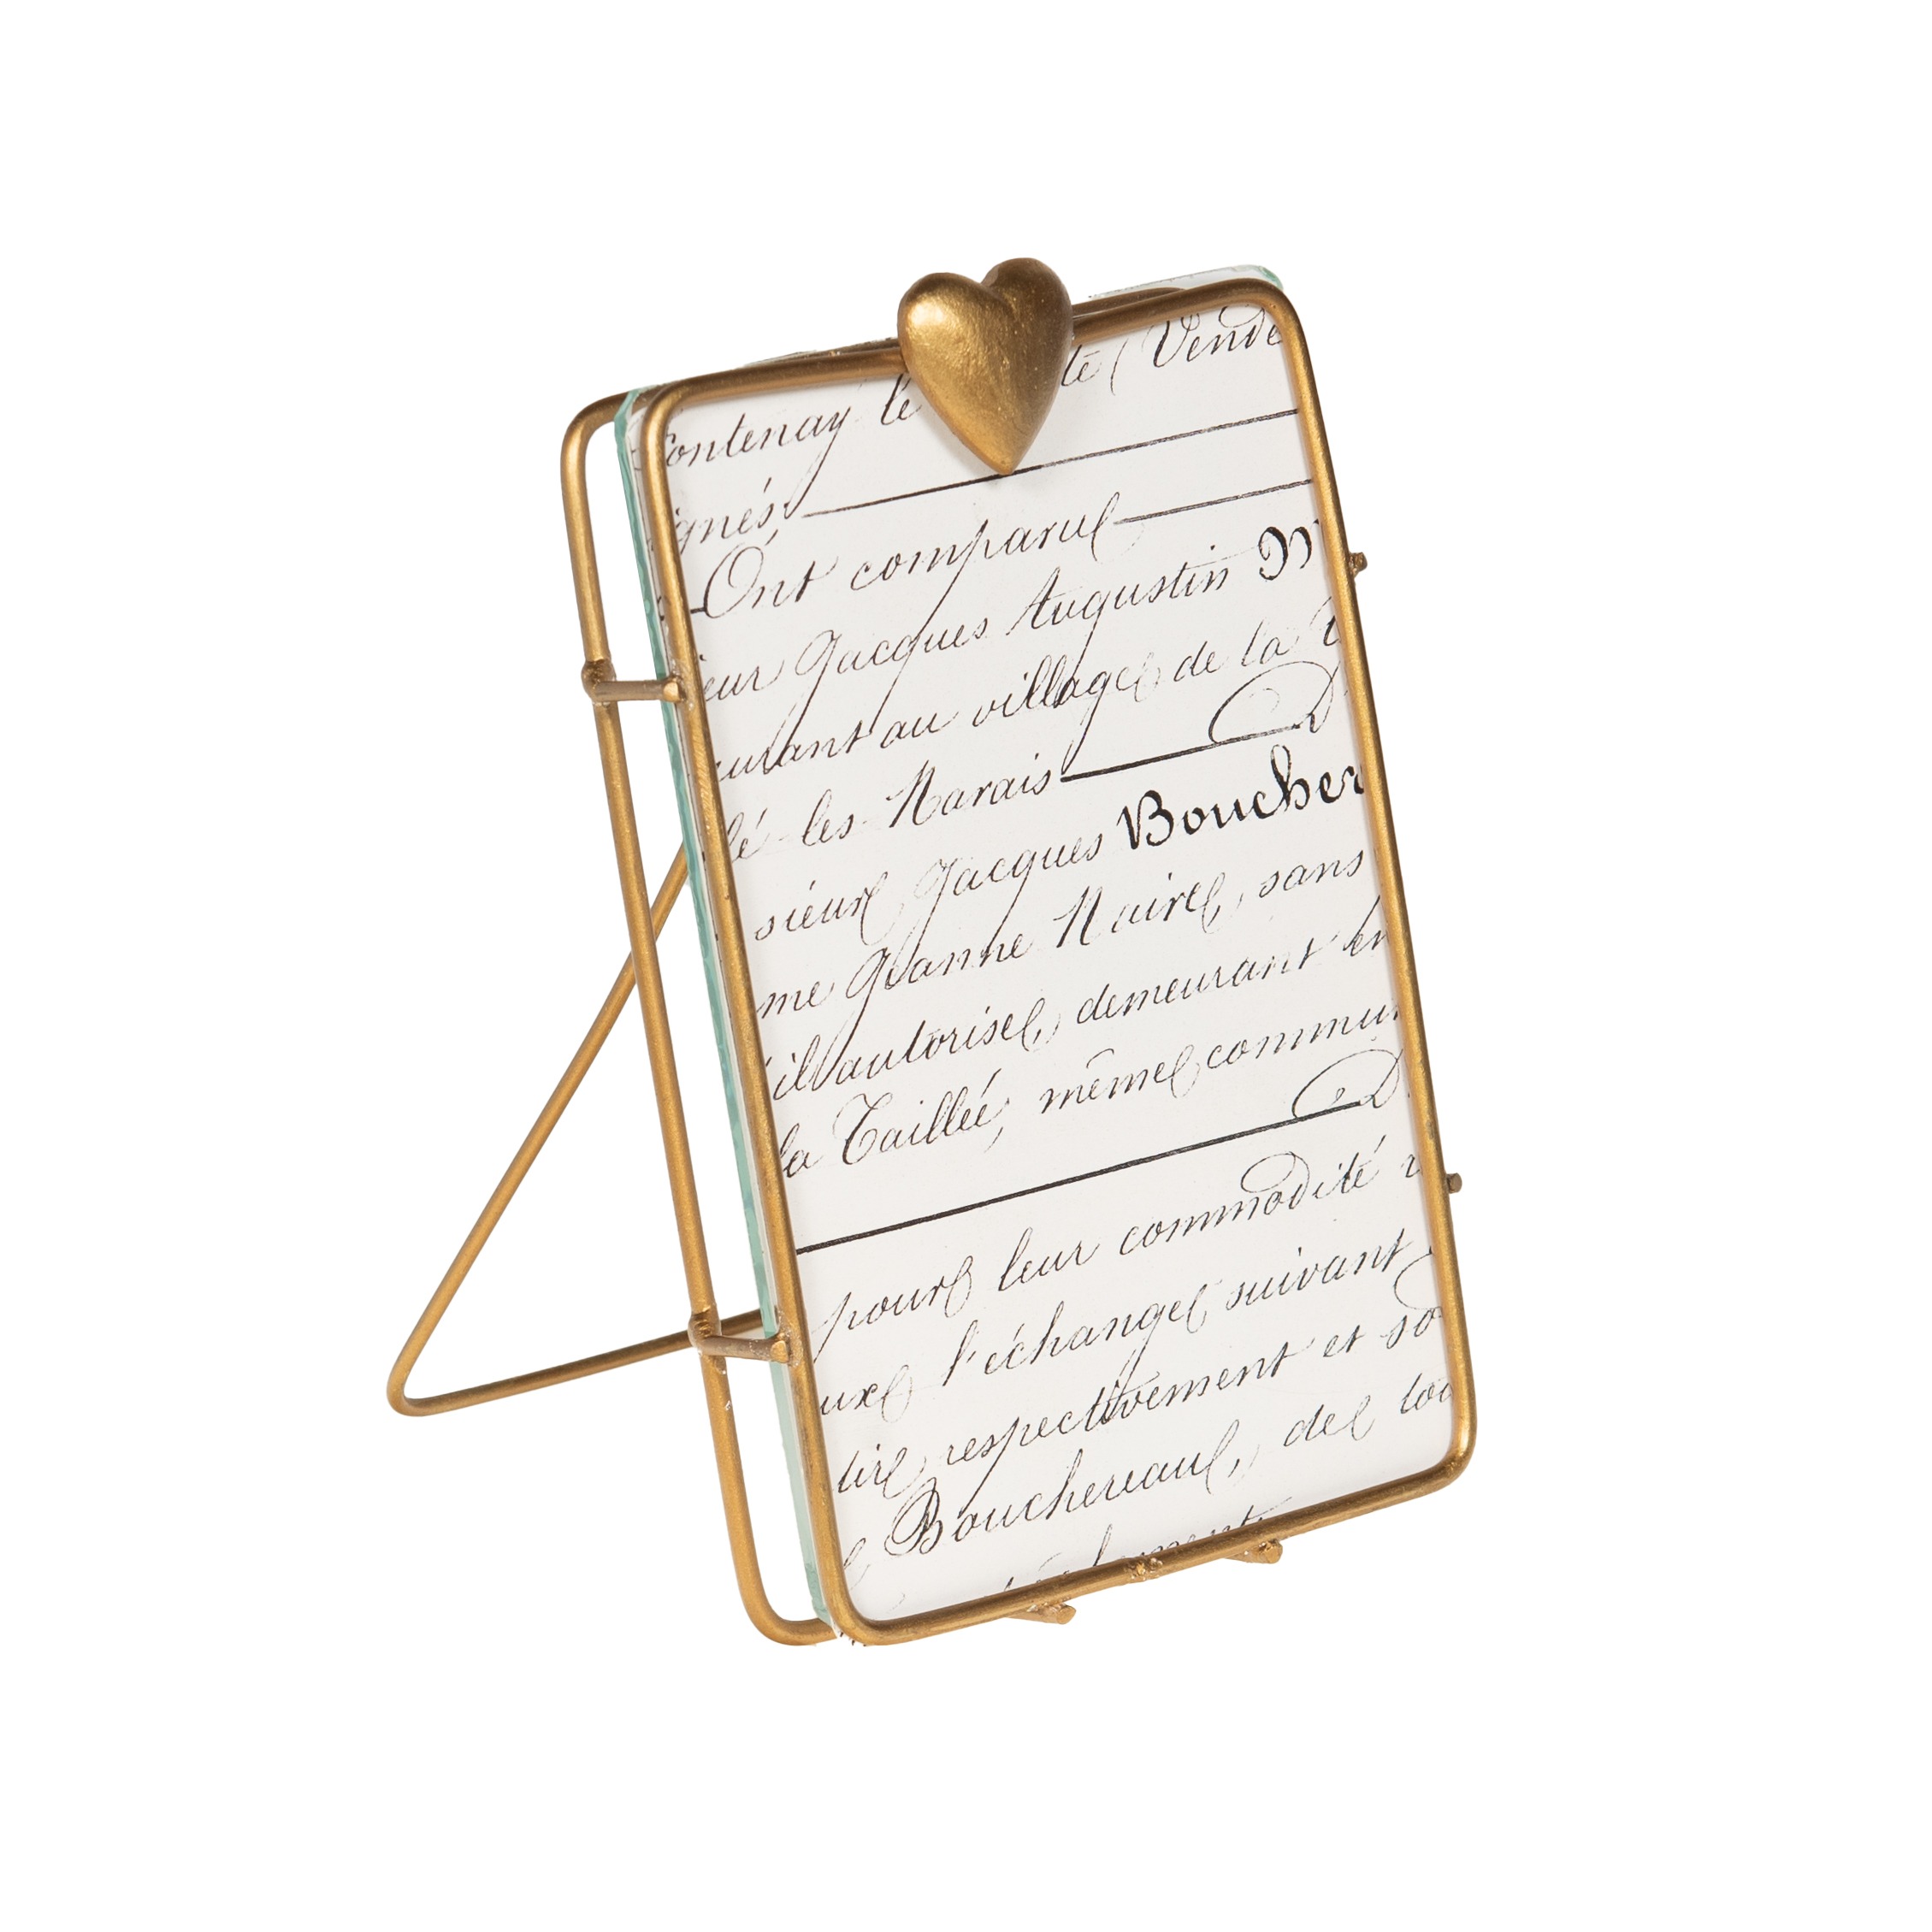 Fontenay le te (Vende
ignés,
Ont comparu
ieur Jacques Augustin M
eurant au village de la
lé les Marais
sieur Jacques Bouchere
me Jeanne Naire, sans
'il autorise, demeurant en
la Taillée, même commun
pour leur commodité
ux l'échange suivant
tire respectivement et so
Bouchereau, de tou